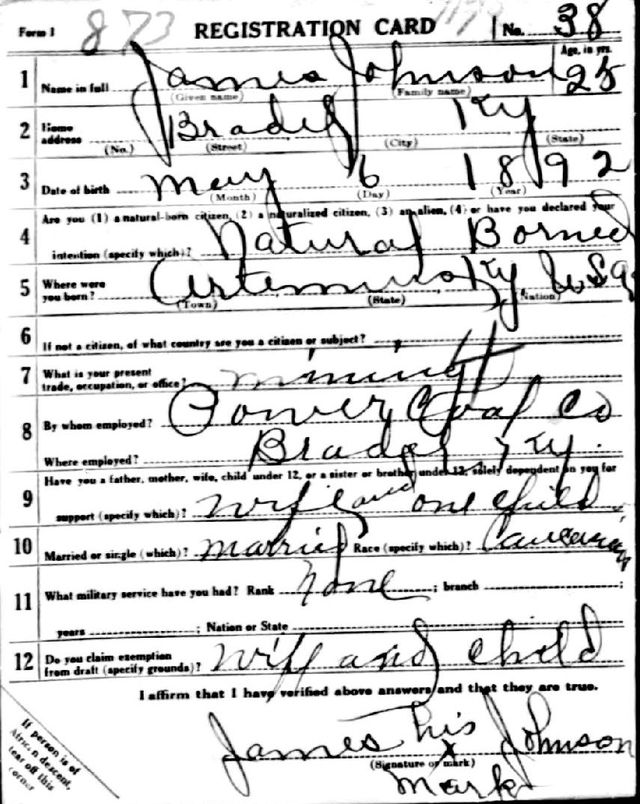 Form 1 873 REGISTRATION CARD No. 38
1 Name in full James Johnson Age, in yrs. 25
(Given name) (Family name)
2 Home address Ky
(No.) (Street) (City) (State)
3 Date of birth May 6 1892
(Month) (Day) (Year)
4 Are you (1) a natural-born citizen, (2) a naturalized citizen, (3) an alien, (4) or have you declared your
intention (specify which)? Natural Borned
5 Where were you born? Ky USA
(Town) (State) (Nation)
6 If not a citizen, of what country are you a citizen or subject?
7 What is your present trade, occupation, or office? mining
8 By whom employed? Power Coal Co
Where employed? Ky.
9 Have you a father, mother, wife, child under 12, or a sister or brother under 12, solely dependent on you for
support (specify which)? wife and one child
10 Married or single (which)? married Race (specify which)? Caucasian
11 What military service have you had? Rank none ; branch ;
years ; Nation or State
12 Do you claim exemption from draft (specify grounds)? wife and child
I affirm that I have verified above answers and that they are true.
James his X Johnson
(Signature or mark)
mark
If person is of
African descent,
tear off this
corner